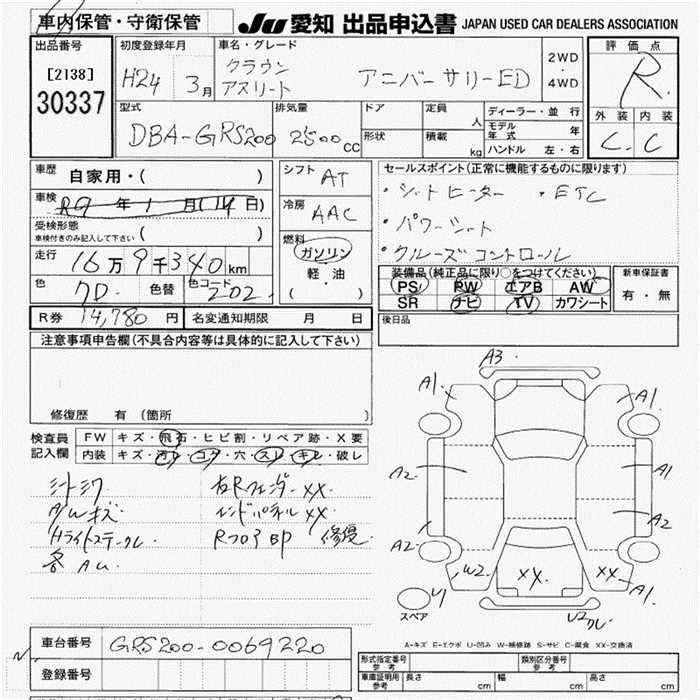 車内保管・守衛保管
JU 愛知 出品申込書 JAPAN USED CAR DEALERS ASSOCIATION
出品番号
[2138]
30337
初度登録年月
H24 3月
車名・グレード
クラウン
アスリート アニバーサリーED
2WD
・
4WD
評価点
R
外装 内装
C C
型式
DBA-GRS200
排気量
2500cc
ドア
形状
定員 人
積載 kg
ディーラー・並行
モデル年式 年
ハンドル 左・右
車歴
自家用・( )
車検
R9年1月(14日)
受検形態
車検付きのみ記入して下さい( )
走行
16万9千340km
色
色替
色コード
202
R券 14,780円
名変通知期限 月 日
シフト
AT
冷房
AAC
燃料
ガソリン
・
軽・油
( )
セールスポイント(正常に機能するものに限ります)
・シートヒーター ・ETC
・パワーシート
・クルーズコントロール
装備品(純正品に限り○をつけてください)
PS PW エアB AW
SR ナビ TV カワシート
新車保証書
有・無
後日品
注意事項申告欄(不具合内容等は具体的に記入して下さい)
修復歴 有(箇所 )
検査員
記入欄
FW キズ・飛石・ヒビ割・リペア跡・X要
内装 キズ・汚レ・コゲ・穴・スレ・キレ・破レ
シートシワ
AWキズ
Hライトステークレ
各AU
右Rフェンダーxx
エンドパネルxx
RフロアBP 修復
A3
A1
A1
A2
A1
A2
A2
W2
XX
XX
A1
U1
スペア
U2
クレ
A-キズ E-エクボ U-凹み W-補修跡 S-サビ C-腐食 XX-交換済
車台番号 GRS200-0069220
登録番号
形式指定番号
参考
類別区分番号
参考
車庫証明用
参考
長さ cm
幅 cm
高さ cm